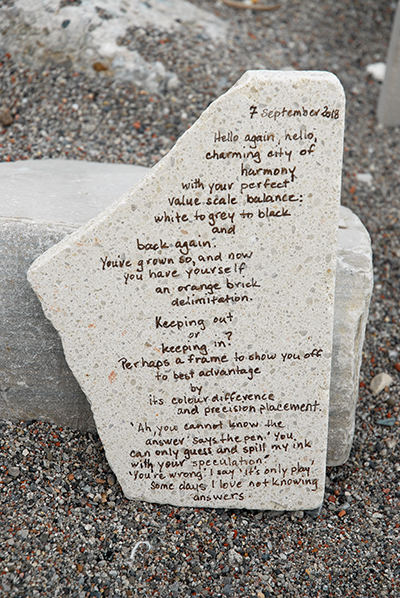 7 September 2018
Hello again, hello,
charming city of
harmony
with your perfect
value scale balance:
white to grey to black
and
back again.
You've grown so, and now
you have yourself
an orange brick
delimitation.
Keeping out
or
keeping in?
Perhaps a frame to show you off
to best advantage
by
its colour difference
and precision placement.
'Ah, you cannot know the
answer' says the pen.' You
can only guess and spill my ink
with your speculation".
'You're wrong' I say 'it's only play
Some days I love not knowing
answers